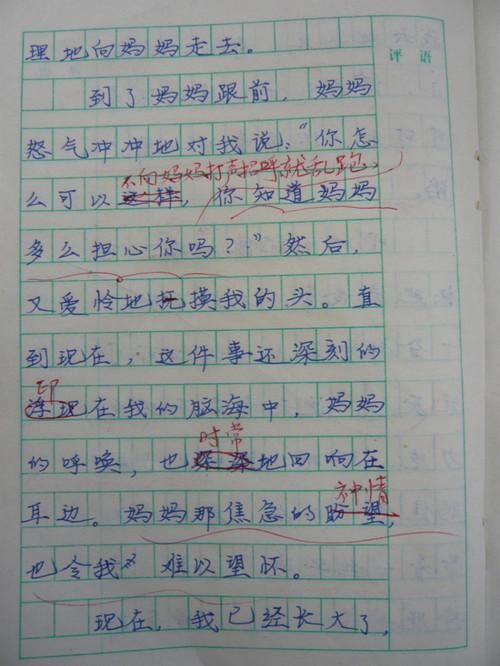 理地向妈妈走去。
评语
到了妈妈跟前，妈妈
怒气冲冲地对我说：“你怎
不向妈妈打声招呼就乱跑、
么可以这样，你知道妈妈
多么担心你吗？”然后，
又爱怜地抚摸我的头。直
到现在，这件事还深刻的
印
浮现在我的脑海中，妈妈
时常
的呼唤，也深深地回响在
神情
耳边。妈妈那焦急的盼望，
也令我难以望怀。
现在，我已经长大了，